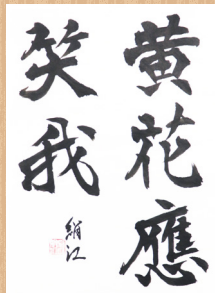 黄花應
笑我
絹江